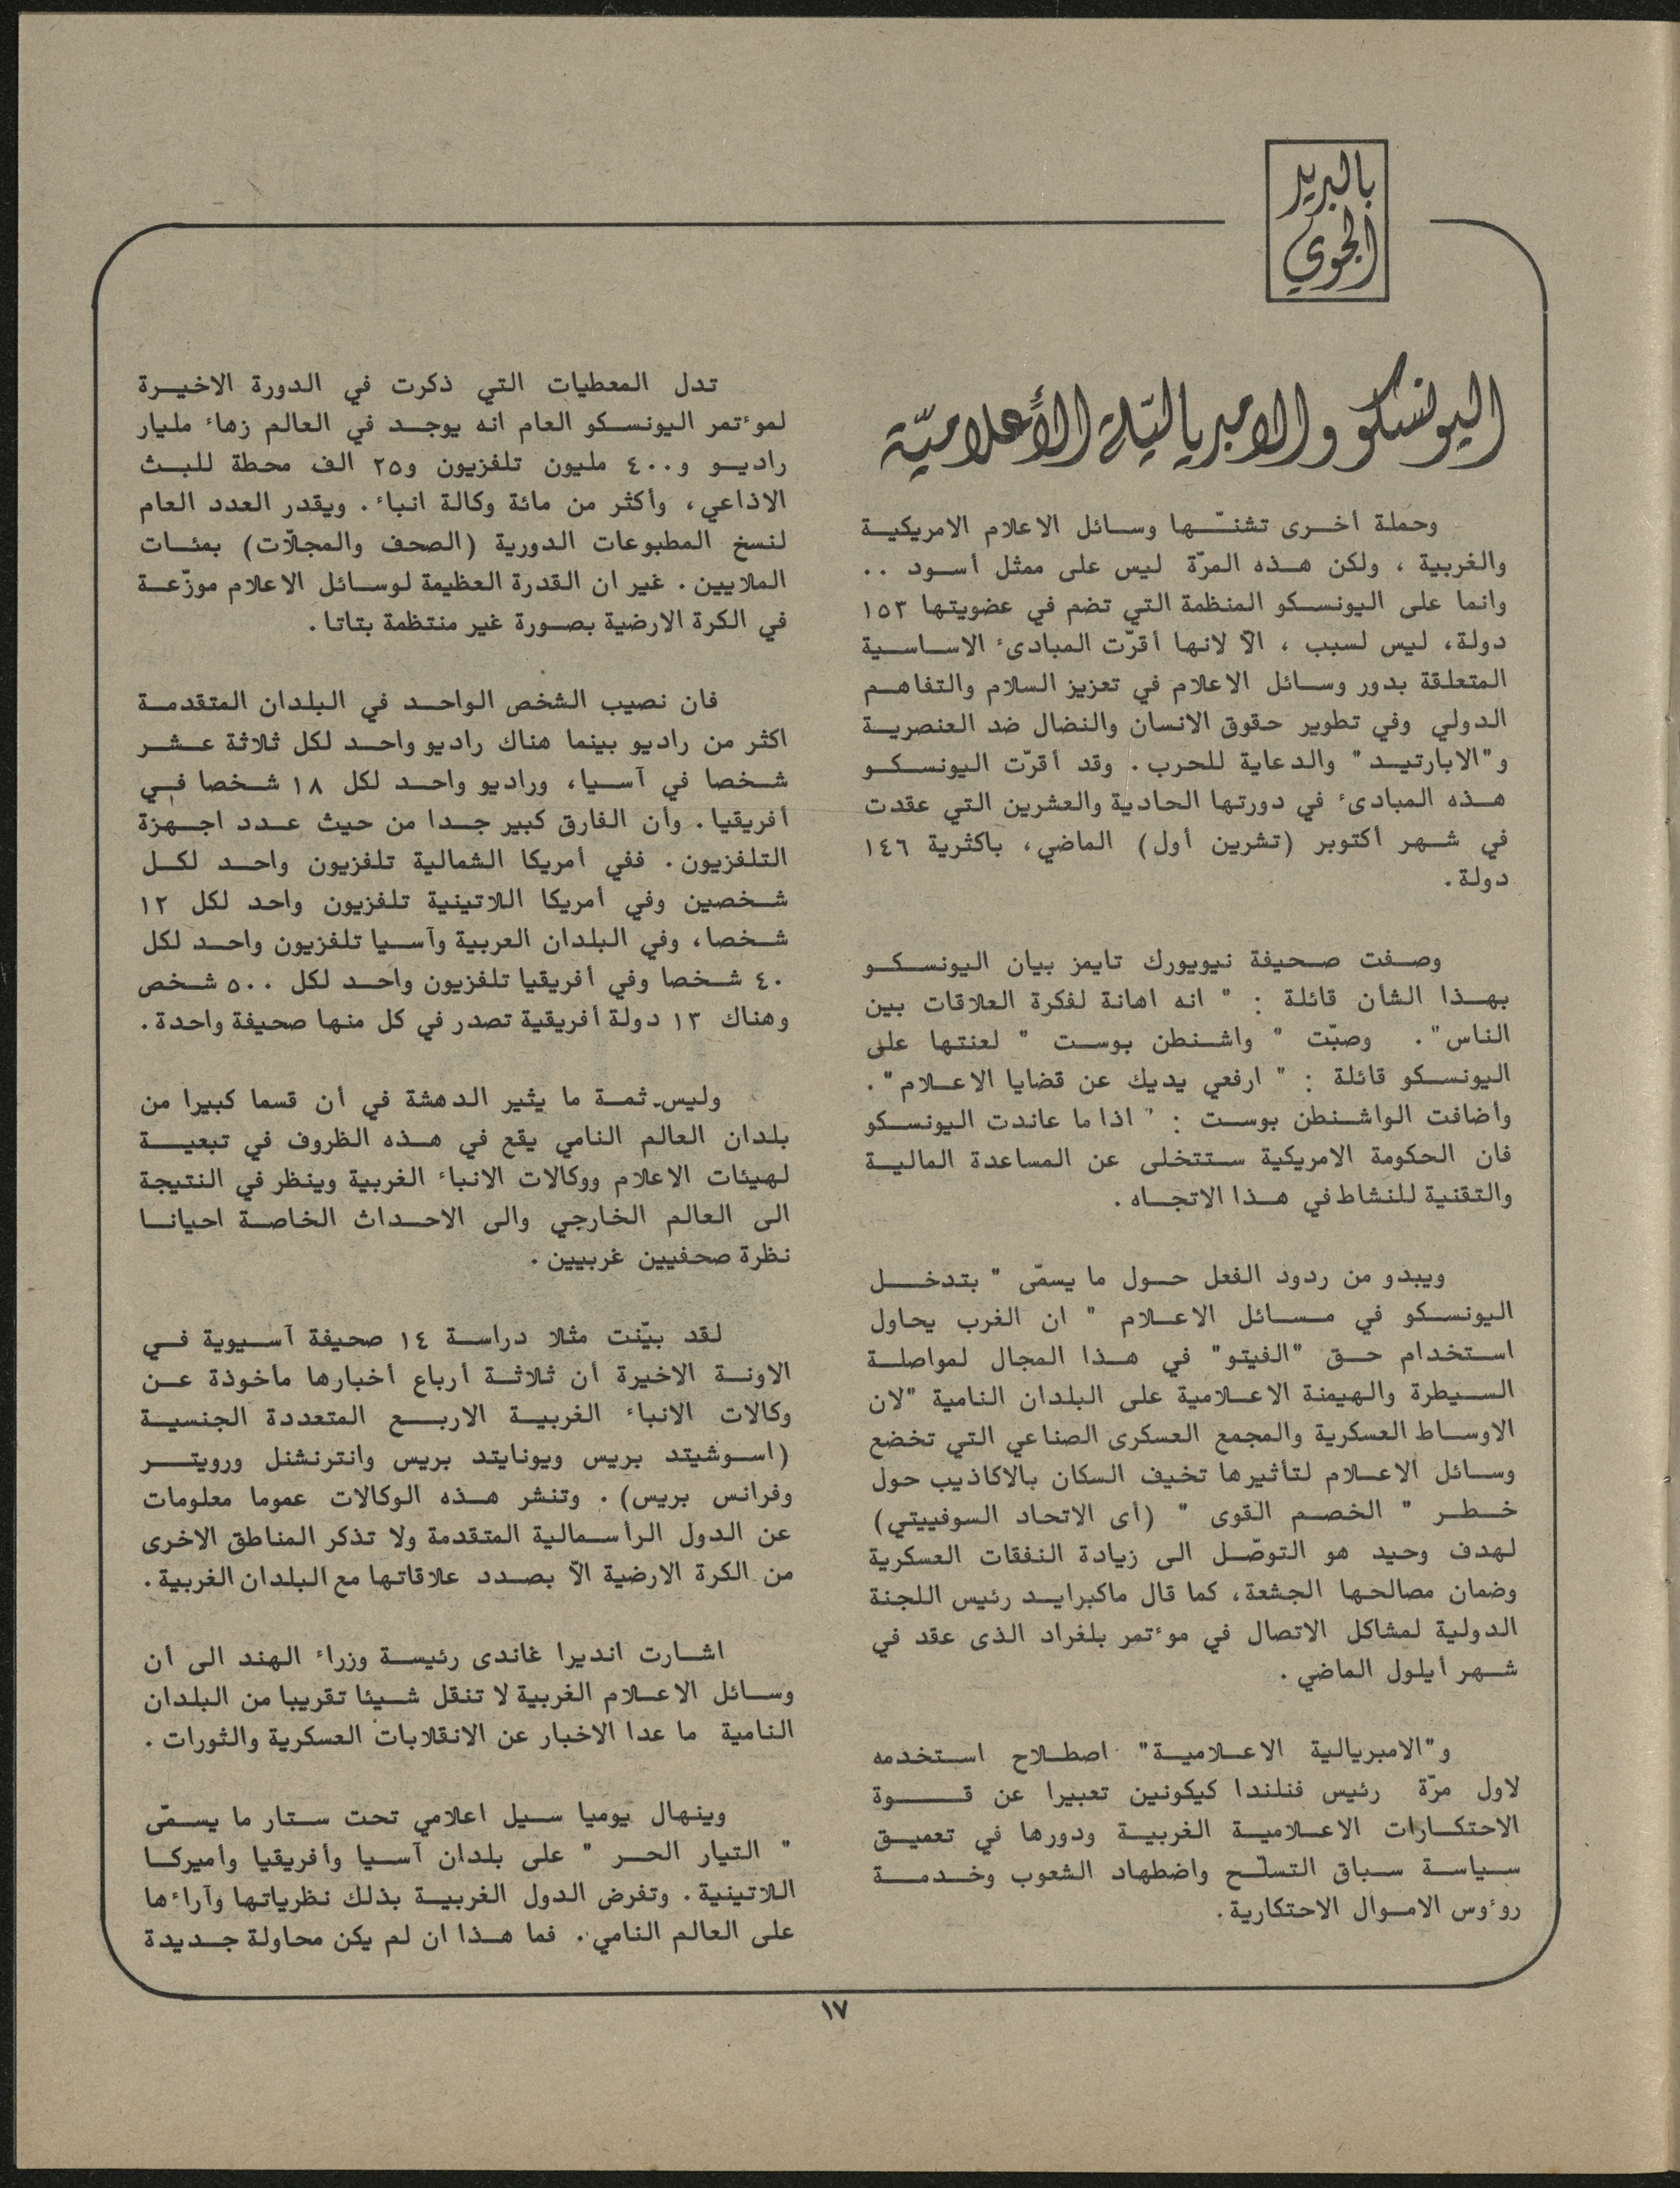 بالبريد
الجوي
اليونسكو والامبرياليّة الأعلاميّة
وحملة أخرى تشنّها وسائل الاعلام الامريكية
والغربية ، ولكن هذه المرّة ليس على ممثل أسود ..
وانما على اليونسكو المنظمة التي تضم في عضويتها ١٥٣
دولة، ليس لسبب ، الّا لانها أقرّت المبادىء الاساسية
المتعلقة بدور وسائل الاعلام في تعزيز السلام والتفاهم
الدولي وفي تطوير حقوق الانسان والنضال ضد العنصرية
و"الابارتيد" والدعاية للحرب. وقد أقرّت اليونسكو
هذه المبادىء في دورتها الحادية والعشرين التي عقدت
في شهر أكتوبر (تشرين أول) الماضي، باكثرية ١٤٦
دولة.
وصفت صحيفة نيويورك تايمز بيان اليونسكو
بهذا الشأن قائلة : " انه اهانة لفكرة العلاقات بين
الناس". وصبّت " واشنطن بوست " لعنتها على
اليونسكو قائلة : " ارفعي يديك عن قضايا الاعلام".
وأضافت الواشنطن بوست : " اذا ما عاندت اليونسكو
فان الحكومة الامريكية ستتخلى عن المساعدة المالية
والتقنية للنشاط في هذا الاتجاه.
ويبدو من ردود الفعل حول ما يسمّى " بتدخل
اليونسكو في مسائل الاعلام " ان الغرب يحاول
استخدام حق "الفيتو" في هذا المجال لمواصلة
السيطرة والهيمنة الاعلامية على البلدان النامية "لان
الاوساط العسكرية والمجمع العسكرى الصناعي التي تخضع
وسائل الاعلام لتأثيرها تخيف السكان بالاكاذيب حول
خطر " الخصم القوى " (أى الاتحاد السوفييتي)
لهدف وحيد هو التوصّل الى زيادة النفقات العسكرية
وضمان مصالحها الجشعة، كما قال ماكبرايد رئيس اللجنة
الدولية لمشاكل الاتصال في موءتمر بلغراد الذى عقد في
شهر أيلول الماضي.
و"الامبريالية الاعلامية" اصطلاح استخدمه
لاول مرّة رئيس فنلندا كيكونين تعبيرا عن قوة
الاحتكارات الاعلامية الغربية ودورها في تعميق
سياسة سباق التسلّح واضطهاد الشعوب وخدمة
روءوس الاموال الاحتكارية.
تدل المعطيات التي ذكرت في الدورة الاخيرة
لموءتمر اليونسكو العام انه يوجد في العالم زهاء مليار
راديو و٤٠٠ مليون تلفزيون و٢٥ الف محطة للبث
الاذاعي، وأكثر من مائة وكالة انباء. ويقدر العدد العام
لنسخ المطبوعات الدورية (الصحف والمجلّات) بمئات
الملايين. غير ان القدرة العظيمة لوسائل الاعلام موزّعة
في الكرة الارضية بصورة غير منتظمة بتاتا.
فان نصيب الشخص الواحد في البلدان المتقدمة
اكثر من راديو بينما هناك راديو واحد لكل ثلاثة عشر
شخصا في آسيا، وراديو واحد لكل ١٨ شخصا في
أفريقيا. وأن الفارق كبير جدا من حيث عدد اجهزة
التلفزيون. ففي أمريكا الشمالية تلفزيون واحد لكل
شخصين وفي أمريكا اللاتينية تلفزيون واحد لكل ١٢
شخصا، وفي البلدان العربية وآسيا تلفزيون واحد لكل
٤٠ شخصا وفي أفريقيا تلفزيون واحد لكل ٥٠٠ شخص
وهناك ١٣ دولة أفريقية تصدر في كل منها صحيفة واحدة.
وليس ثمة ما يثير الدهشة في أن قسما كبيرا من
بلدان العالم النامي يقع في هذه الظروف في تبعية
لهيئات الاعلام ووكالات الانباء الغربية وينظر في النتيجة
الى العالم الخارجي والى الاحداث الخاصة احيانا
نظرة صحفيين غربيين.
لقد بيّنت مثلا دراسة ١٤ صحيفة آسيوية في
الاونة الاخيرة أن ثلاثة أرباع أخبارها مأخوذة عن
وكالات الانباء الغربية الاربع المتعددة الجنسية
(اسوشيتد بريس ويونايتد بريس وانترنشنل ورويتر
وفرانس بريس). وتنشر هذه الوكالات عموما معلومات
عن الدول الرأسمالية المتقدمة ولا تذكر المناطق الاخرى
من الكرة الارضية الّا بصدد علاقاتها مع البلدان الغربية.
اشارت انديرا غاندى رئيسة وزراء الهند الى أن
وسائل الاعلام الغربية لا تنقل شيئا تقريبا من البلدان
النامية ما عدا الاخبار عن الانقلابات العسكرية والثورات.
وينهال يوميا سيل اعلامي تحت ستار ما يسمّى
" التيار الحر " على بلدان آسيا وأفريقيا وأميركا
اللاتينية. وتفرض الدول الغربية بذلك نظرياتها وآراءها
على العالم النامي. فما هذا ان لم يكن محاولة جديدة
١٧